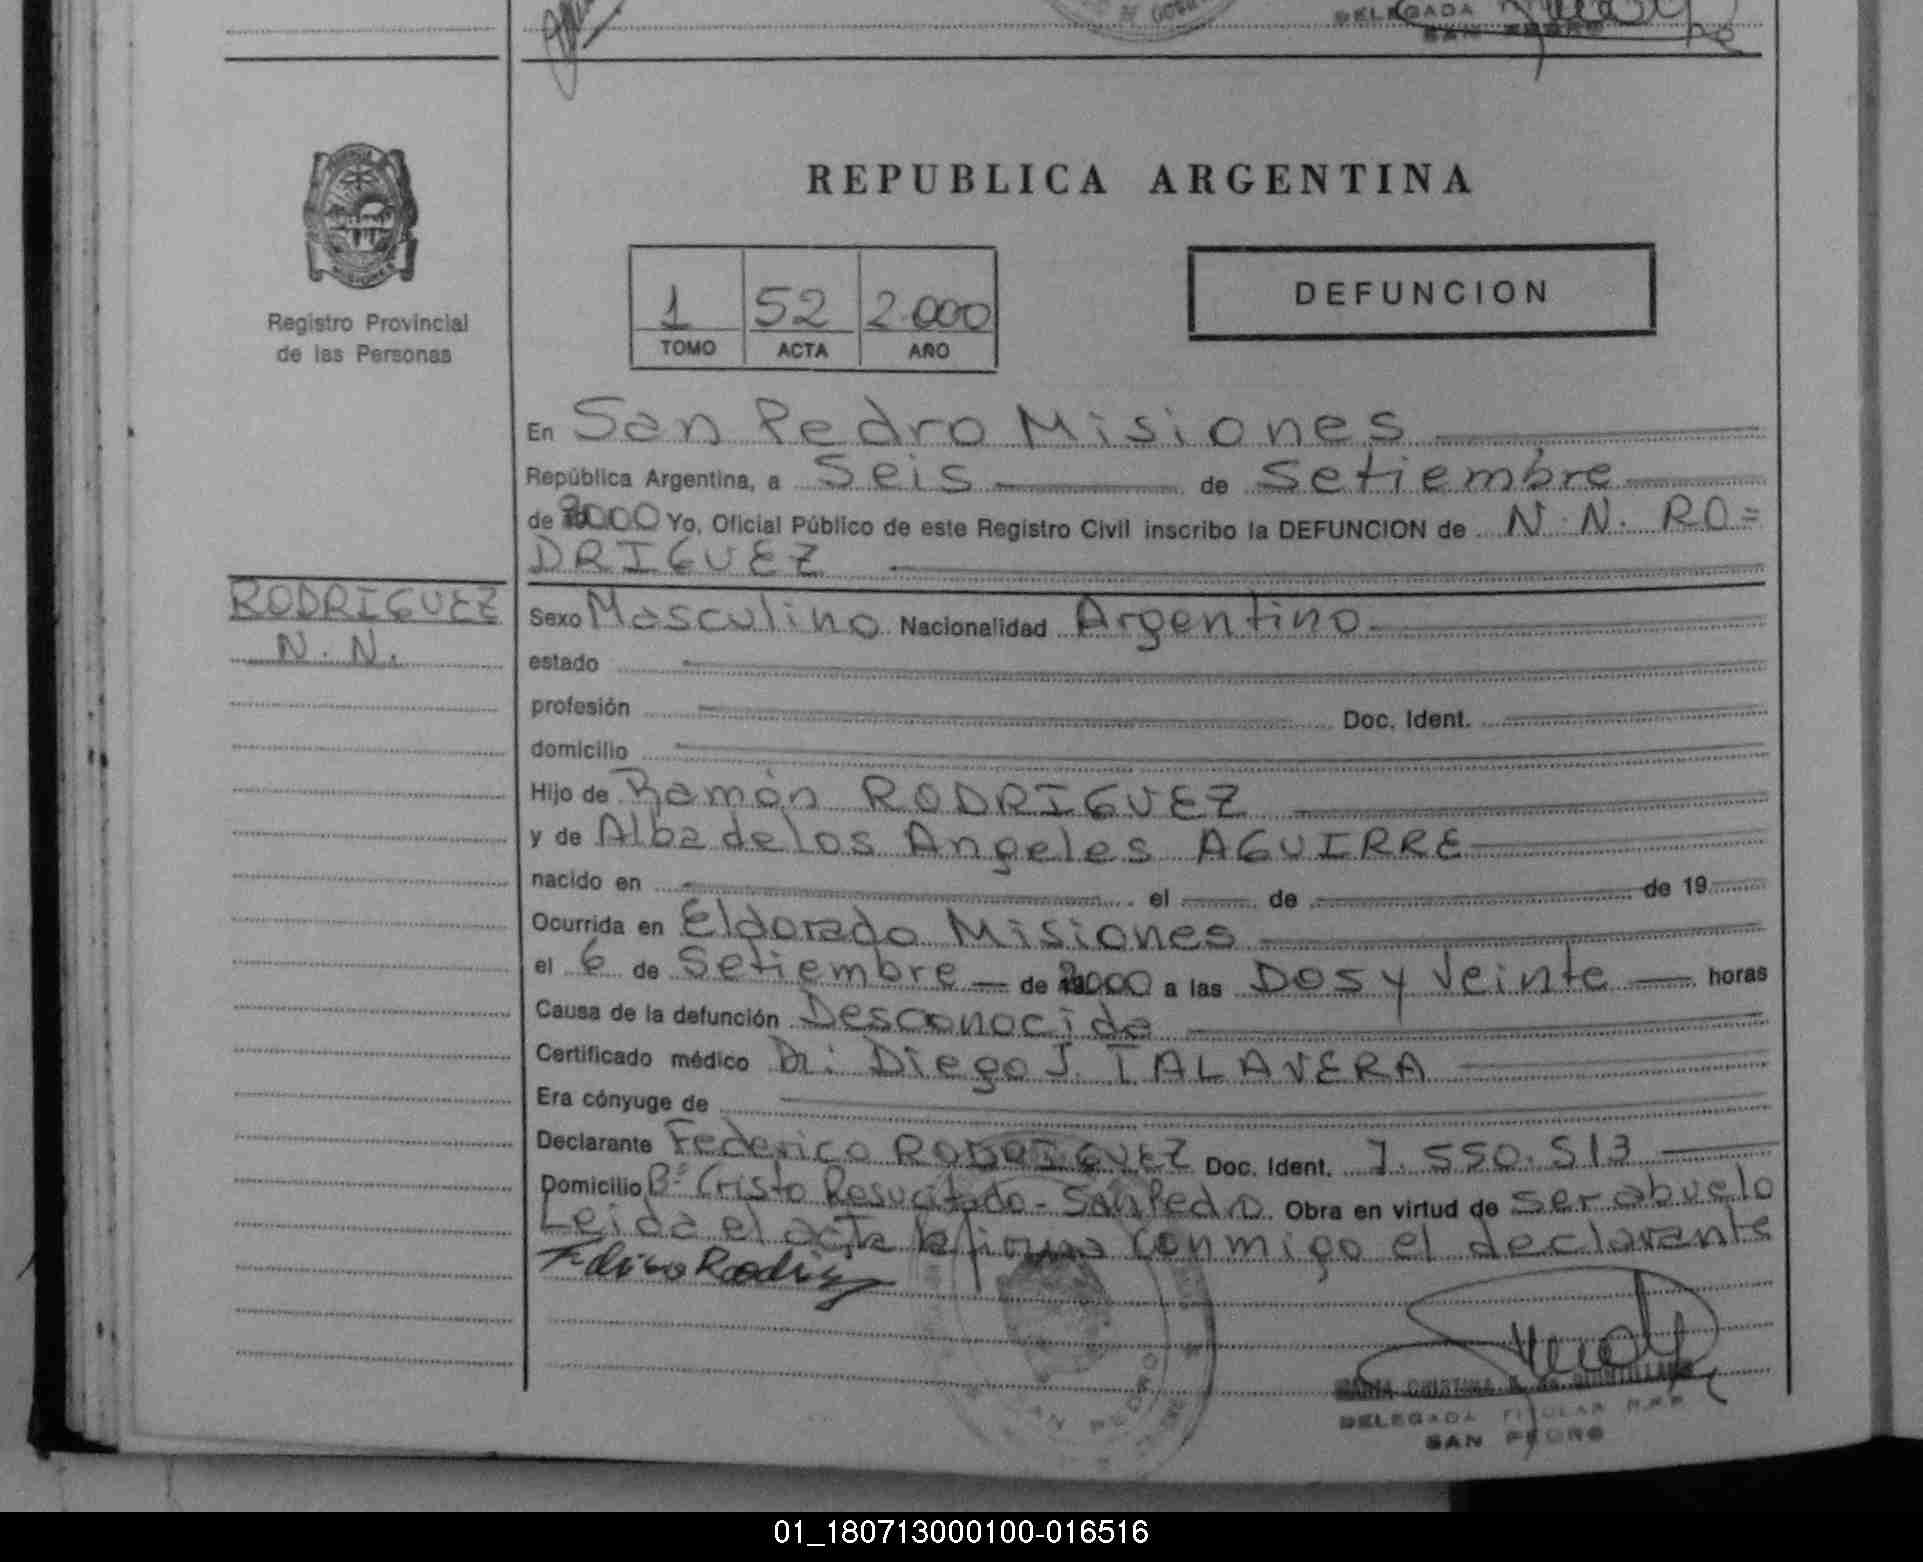 DELEGADA
SAN PEDRO
REPUBLICA ARGENTINA
MISIONES
Registro Provincial
de las Personas
1 52 2.000
TOMO ACTA AÑO
DEFUNCION
En San Pedro Misiones
República Argentina, a Seis de Setiembre
de 2000 Yo, Oficial Público de este Registro Civil inscribo la DEFUNCION de N. N. RO=
DRIGUEZ
RODRIGUEZ
N. N.
Sexo Masculino Nacionalidad Argentino
estado
profesión Doc. Ident.
domicilio
Hijo de Ramón RODRIGUEZ
y de Alba de los Angeles AGUIRRE
nacido en el de de 19
Ocurrida en Eldorado Misiones
el 6 de Setiembre de 2000 a las Dos y Veinte horas
Causa de la defunción Desconocida
Certificado médico Dr: Diego J. TALAVERA
Era cónyuge de
Declarante Federico RODRIGUEZ Doc. Ident. 7.550.513
Domicilio Bº Cristo Resucitado - San Pedro Obra en virtud de ser abuelo
Leida el acta la firma conmigo el declarante
SAN PEDRO
MARIA CRISTINA
DELEGADA TITULAR R.P.P.
SAN PEDRO
01_180713000100-016516